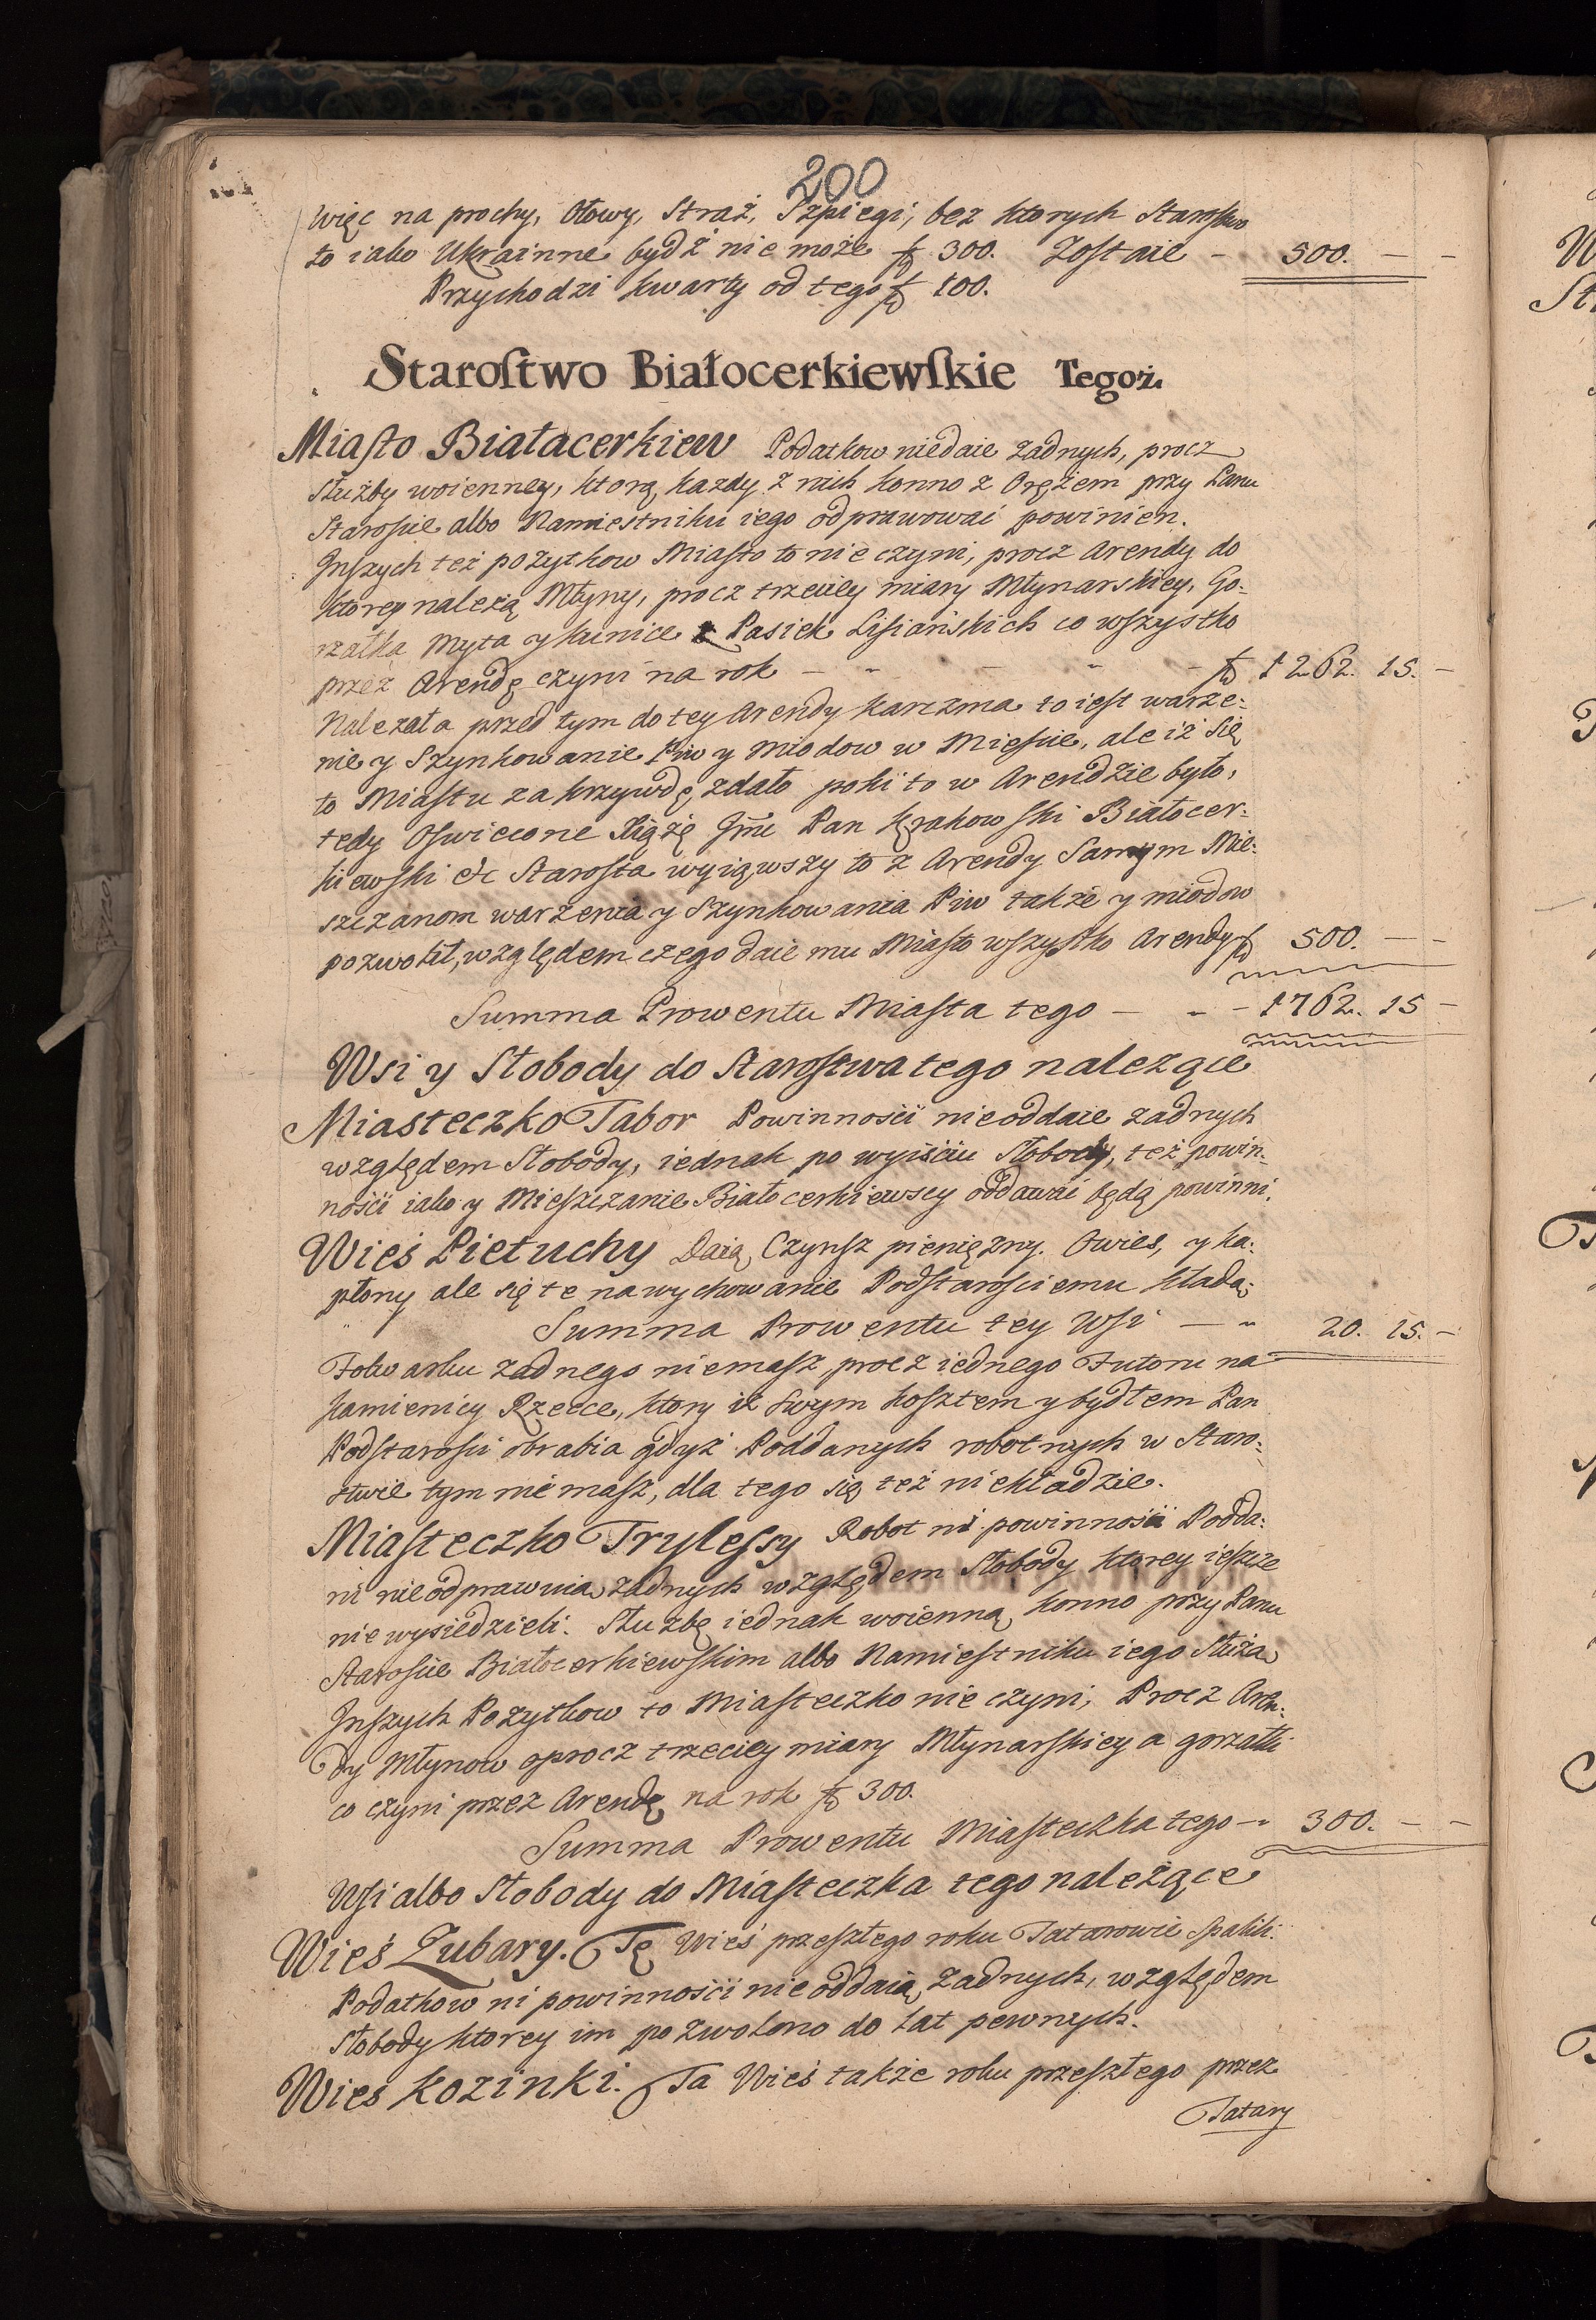 200
więc na prochy, Ołowy, Straż, Szpiegi, bez ktorych Starostwo
to iako Ukrainne bydź nie może fl 300. Zostaie - 500. - -
Przychodzi kwarty od tego fl 100.
Starostwo Białocerkiewskie Tegoż.
Miasto Białacerkiew Podatkow niedaie żadnych, procz
służby woienney, ktorą każdy z nich konno z Orężem przy Panu
Staroscie albo Namiestniku iego odprawować powinien.
Inszych też pożytkow Miasto to nie czyni, procz Arendy do
ktorey należą Młyny, procz trzeciey miary Młynarskiey, Go-
rzałka Myta y kunice z Pasiek Lisiańskich co wszystko
przez Arendę czyni na rok - - - - - fl 1262. 15. -
Należała przed tym do tey Arendy karczma to iest warze-
nie y Szynkowanie Piw y miodow w Mieście, ale iż się
to Miastu za krzywdę zdało poki to w Arendzie było,
tedy Oswiecone Xiążę Jmć Pan Krakowski Białocer-
kiewski etc Starosta wyiąwszy to z Arendy Samym Mie-
szczanom warzenia y szynkowania Piw także y miodow
pozwolił, względem czego daie mu Miasto wszystko Arendy fl 500. - -
Summa Prowentu Miasta tego - - - 1762. 15 -
Wsi y Słobody do Starostwa tego należące
Miasteczko Tabor Powinnośći nieoddaie żadnych
względem Słobody, iednak po wyiśćiu Słobody, też powin-
nośći iako y Mieszczanie Białocerkiewscy oddawać będą powinni.
Wieś Pietuchy Daią Czynsz pieniężny. Owies, y ka-
płony ale się te na wychowanie Podstarosciemu kładą.
Summa Prowentu tey Wsi - - 20. 15. -
Folwarku żadnego niemasz procz iednego Futoru na
Kamienicy Rzecce, ktory iż swym kosztem y bydłem Pan
Podstarosci obrabia gdyż Poddanych robotnych w Staro-
stwie tym niemasz, dla tego się też niekładzie.
Miasteczko Trylessy Robot ni powinnośći Podda-
ni nieodprawuią żadnych względem Słobody ktorey ieszcze
nie wysiedzieli. Służbę iednak woienną konno przy Panu
Staroscie Białocerkiewskim albo Namiestniku iego służą
Inszych Pożytkow to Miasteczko nie czyni, Procz Aren-
dy Młynow oprocz trzeciey miary Młynarskiey a gorzałki
co czyni przez Arendę na rok fl 300.
Summa Prowentu Miasteczka tego - 300. - -
Wsi albo Słobody do Miasteczka tego należące
Wieś Zubary. Tę Wieś przeszłego roku Tatarowie spalili.
Podatkow ni powinnośći nie oddaią żadnych, względem
Słobody ktorey im pozwolono do lat pewnych.
Wieś Kozinki. Ta Wieś także roku przeszłego przez
Tatary